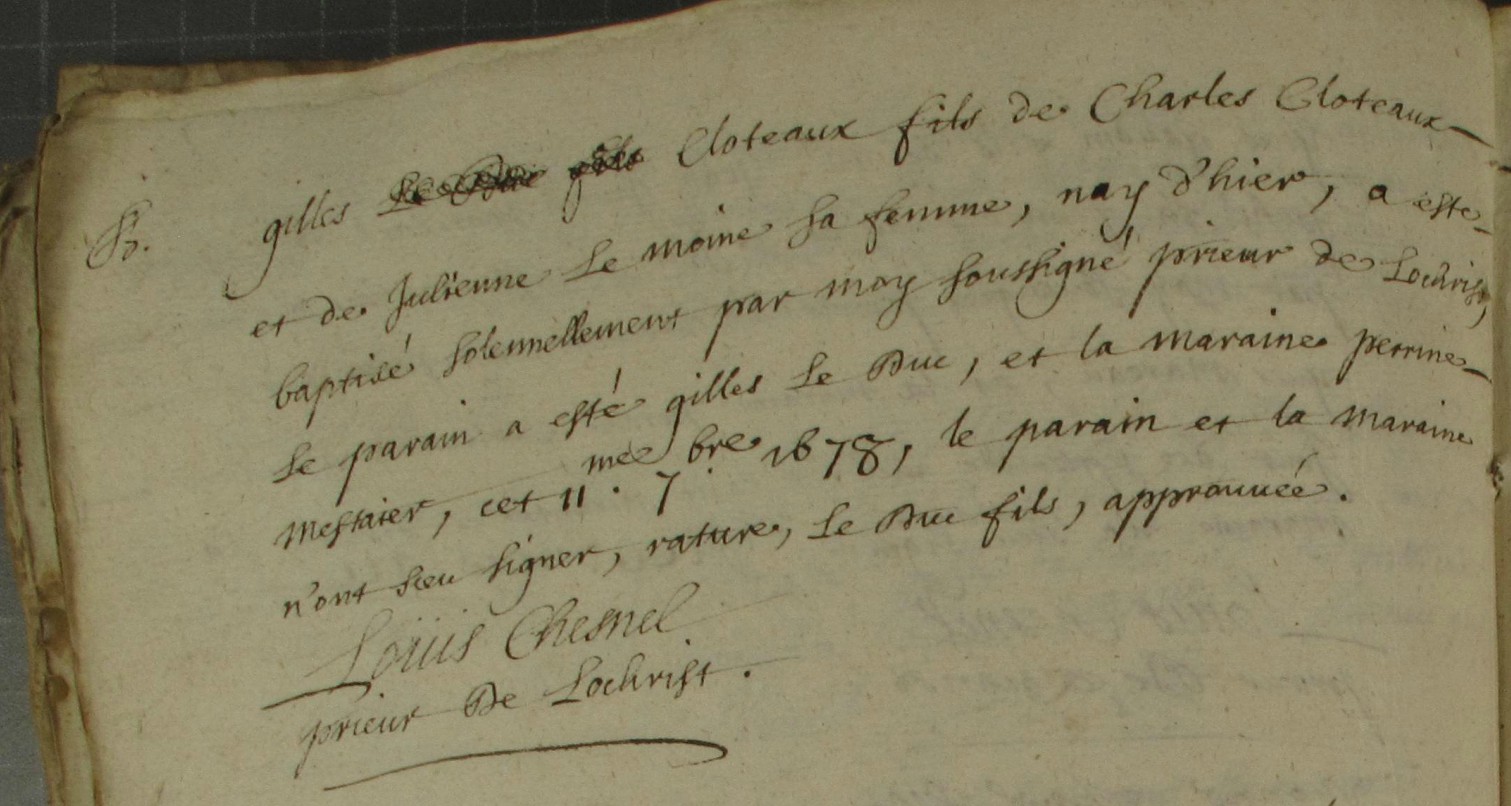 B. gilles Le Duc fils Cloteaux fils de Charles Cloteaux
et de Julienne Le moine sa femme, nay d'hier, a esté
baptisé solennellement par moy soussigné prieur de Lochrist,
Le parain a esté gilles Le Duc, et la maraine perrine
mestaier, cet 11.me 7.bre 1678, le parain et la maraine
n'ont sceu signer, rature, Le Duc fils, approuuée.
Loüis Chesnel
prieur De Lochrist.